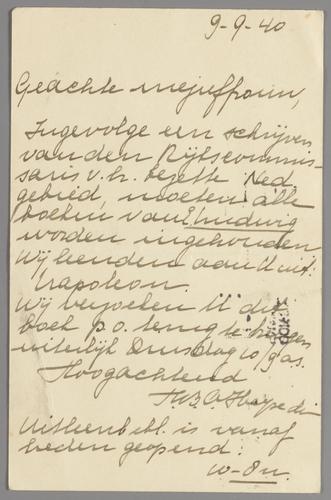 9-9-40
Geachte mejuffrouw,
Ingevolge een schrijven
van den Rijkscommis-
saris v. h. bezette Ned.
gebied, moeten alle
boeken van E. Ludwig
worden ingehouden
Wij leenden aan U uit:
Napoleon.
Wij verzoeken U dit
boek p.o. terug te brengen
uiterlijk Dinsdag 10/9 a.s.
Hoogachtend
Uitleenbibl. is vanaf
heden geopend:
10-8 u.